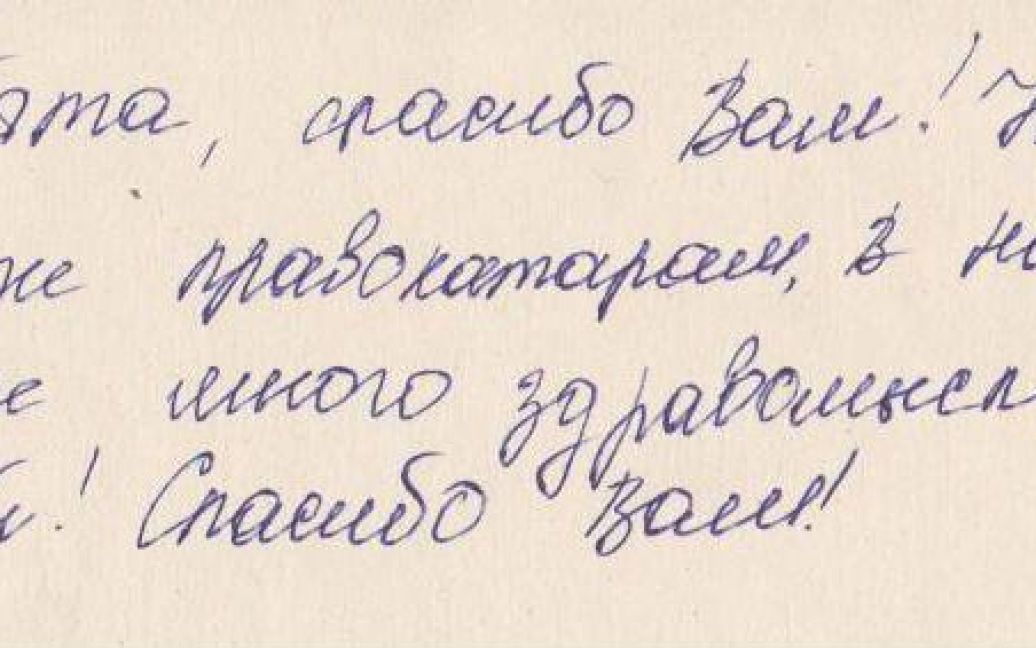 ята, спасибо Вам!
же правокатарам, в на
е много здравомысл
й! Спасибо Вам!